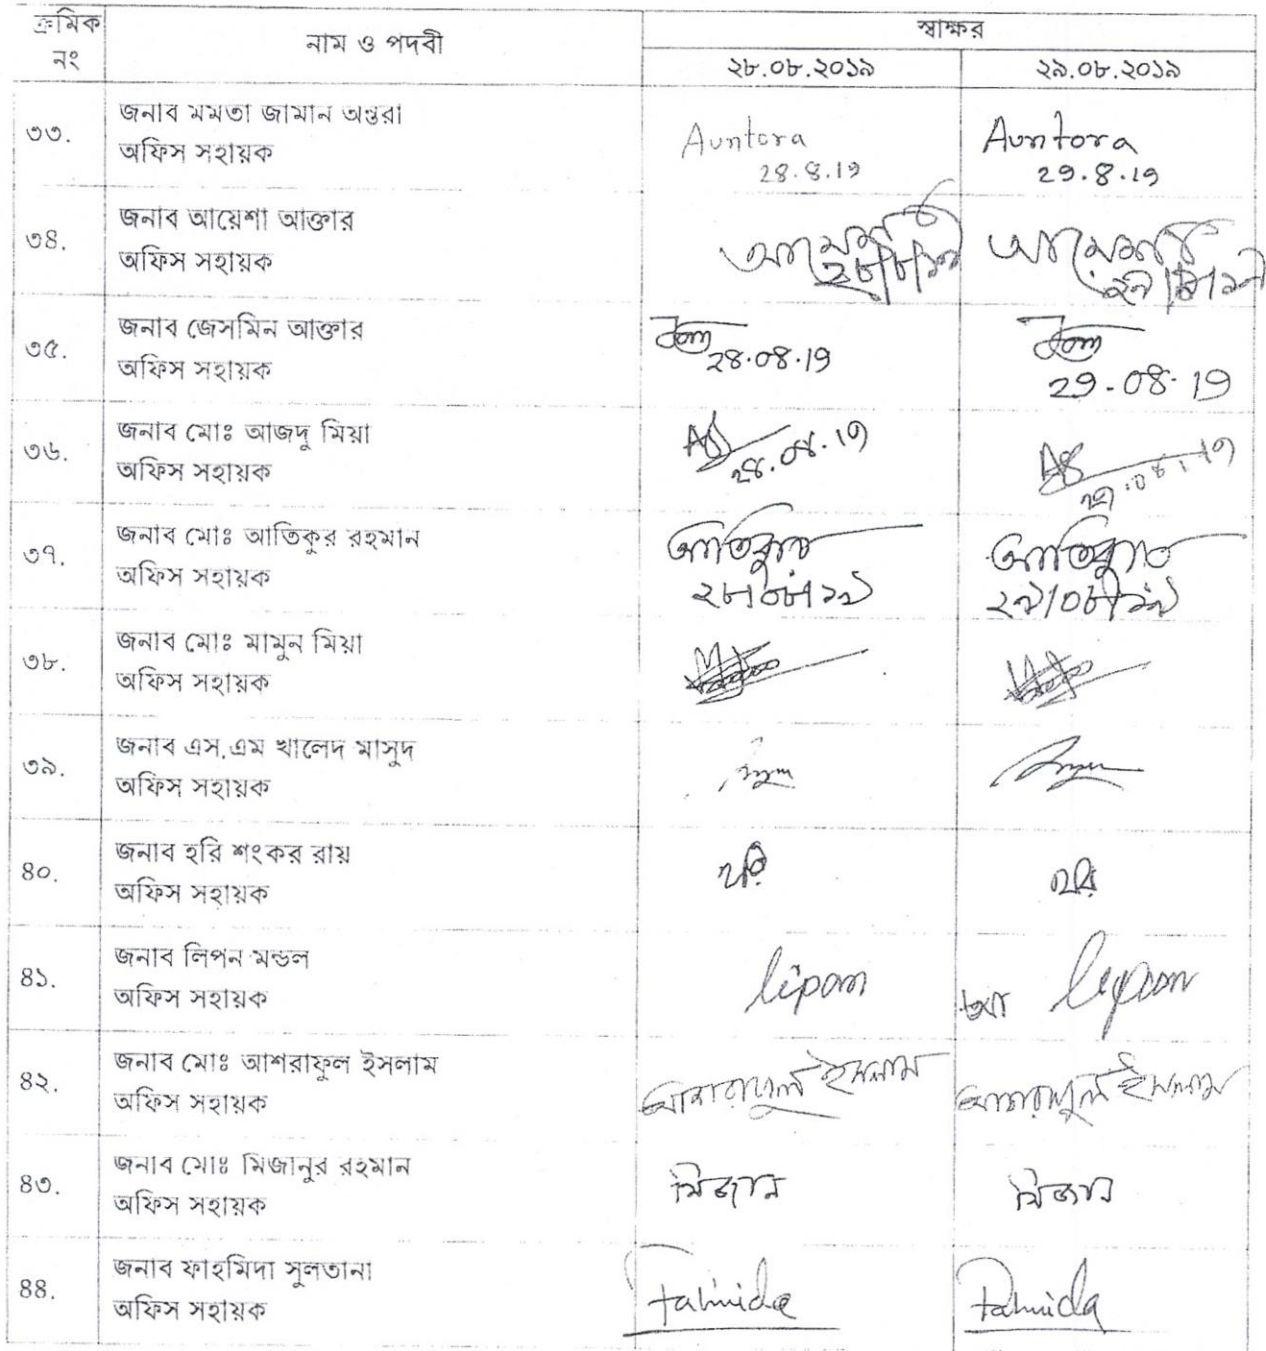 ক্রমিক নং
নাম ও পদবী
স্বাক্ষর
২৮.০৮.২০১৯
২৯.০৮.২০১৯
৩৩.
জনাব মমতা জামান অন্তরা
অফিস সহায়ক
Auntora
28.8.19
Auntora
29.8.19
৩৪.
জনাব আয়েশা আক্তার
অফিস সহায়ক
২৮/৮/১৯
২৯/৮/১৯
৩৫.
জনাব জেসমিন আক্তার
অফিস সহায়ক
28.08.19
29-08-19
৩৬.
জনাব মোঃ আজদু মিয়া
অফিস সহায়ক
28.08.19
29.08.19
৩৭.
জনাব মোঃ আতিকুর রহমান
অফিস সহায়ক
আতিকুর
২৮/০৮/১৯
আতিকুর
২৯/০৮/১৯
৩৮.
জনাব মোঃ মামুন মিয়া
অফিস সহায়ক
৩৯.
জনাব এস.এম খালেদ মাসুদ
অফিস সহায়ক
৪০.
জনাব হরি শংকর রায়
অফিস সহায়ক
হরি
হরি
৪১.
জনাব লিপন মন্ডল
অফিস সহায়ক
lipon
lipon
৪২.
জনাব মোঃ আশরাফুল ইসলাম
অফিস সহায়ক
আশরাফুল ইসলাম
আশরাফুল ইসলাম
৪৩.
জনাব মোঃ মিজানুর রহমান
অফিস সহায়ক
মিজান
মিজান
৪৪.
জনাব ফাহমিদা সুলতানা
অফিস সহায়ক
Fahmida
Fahmida